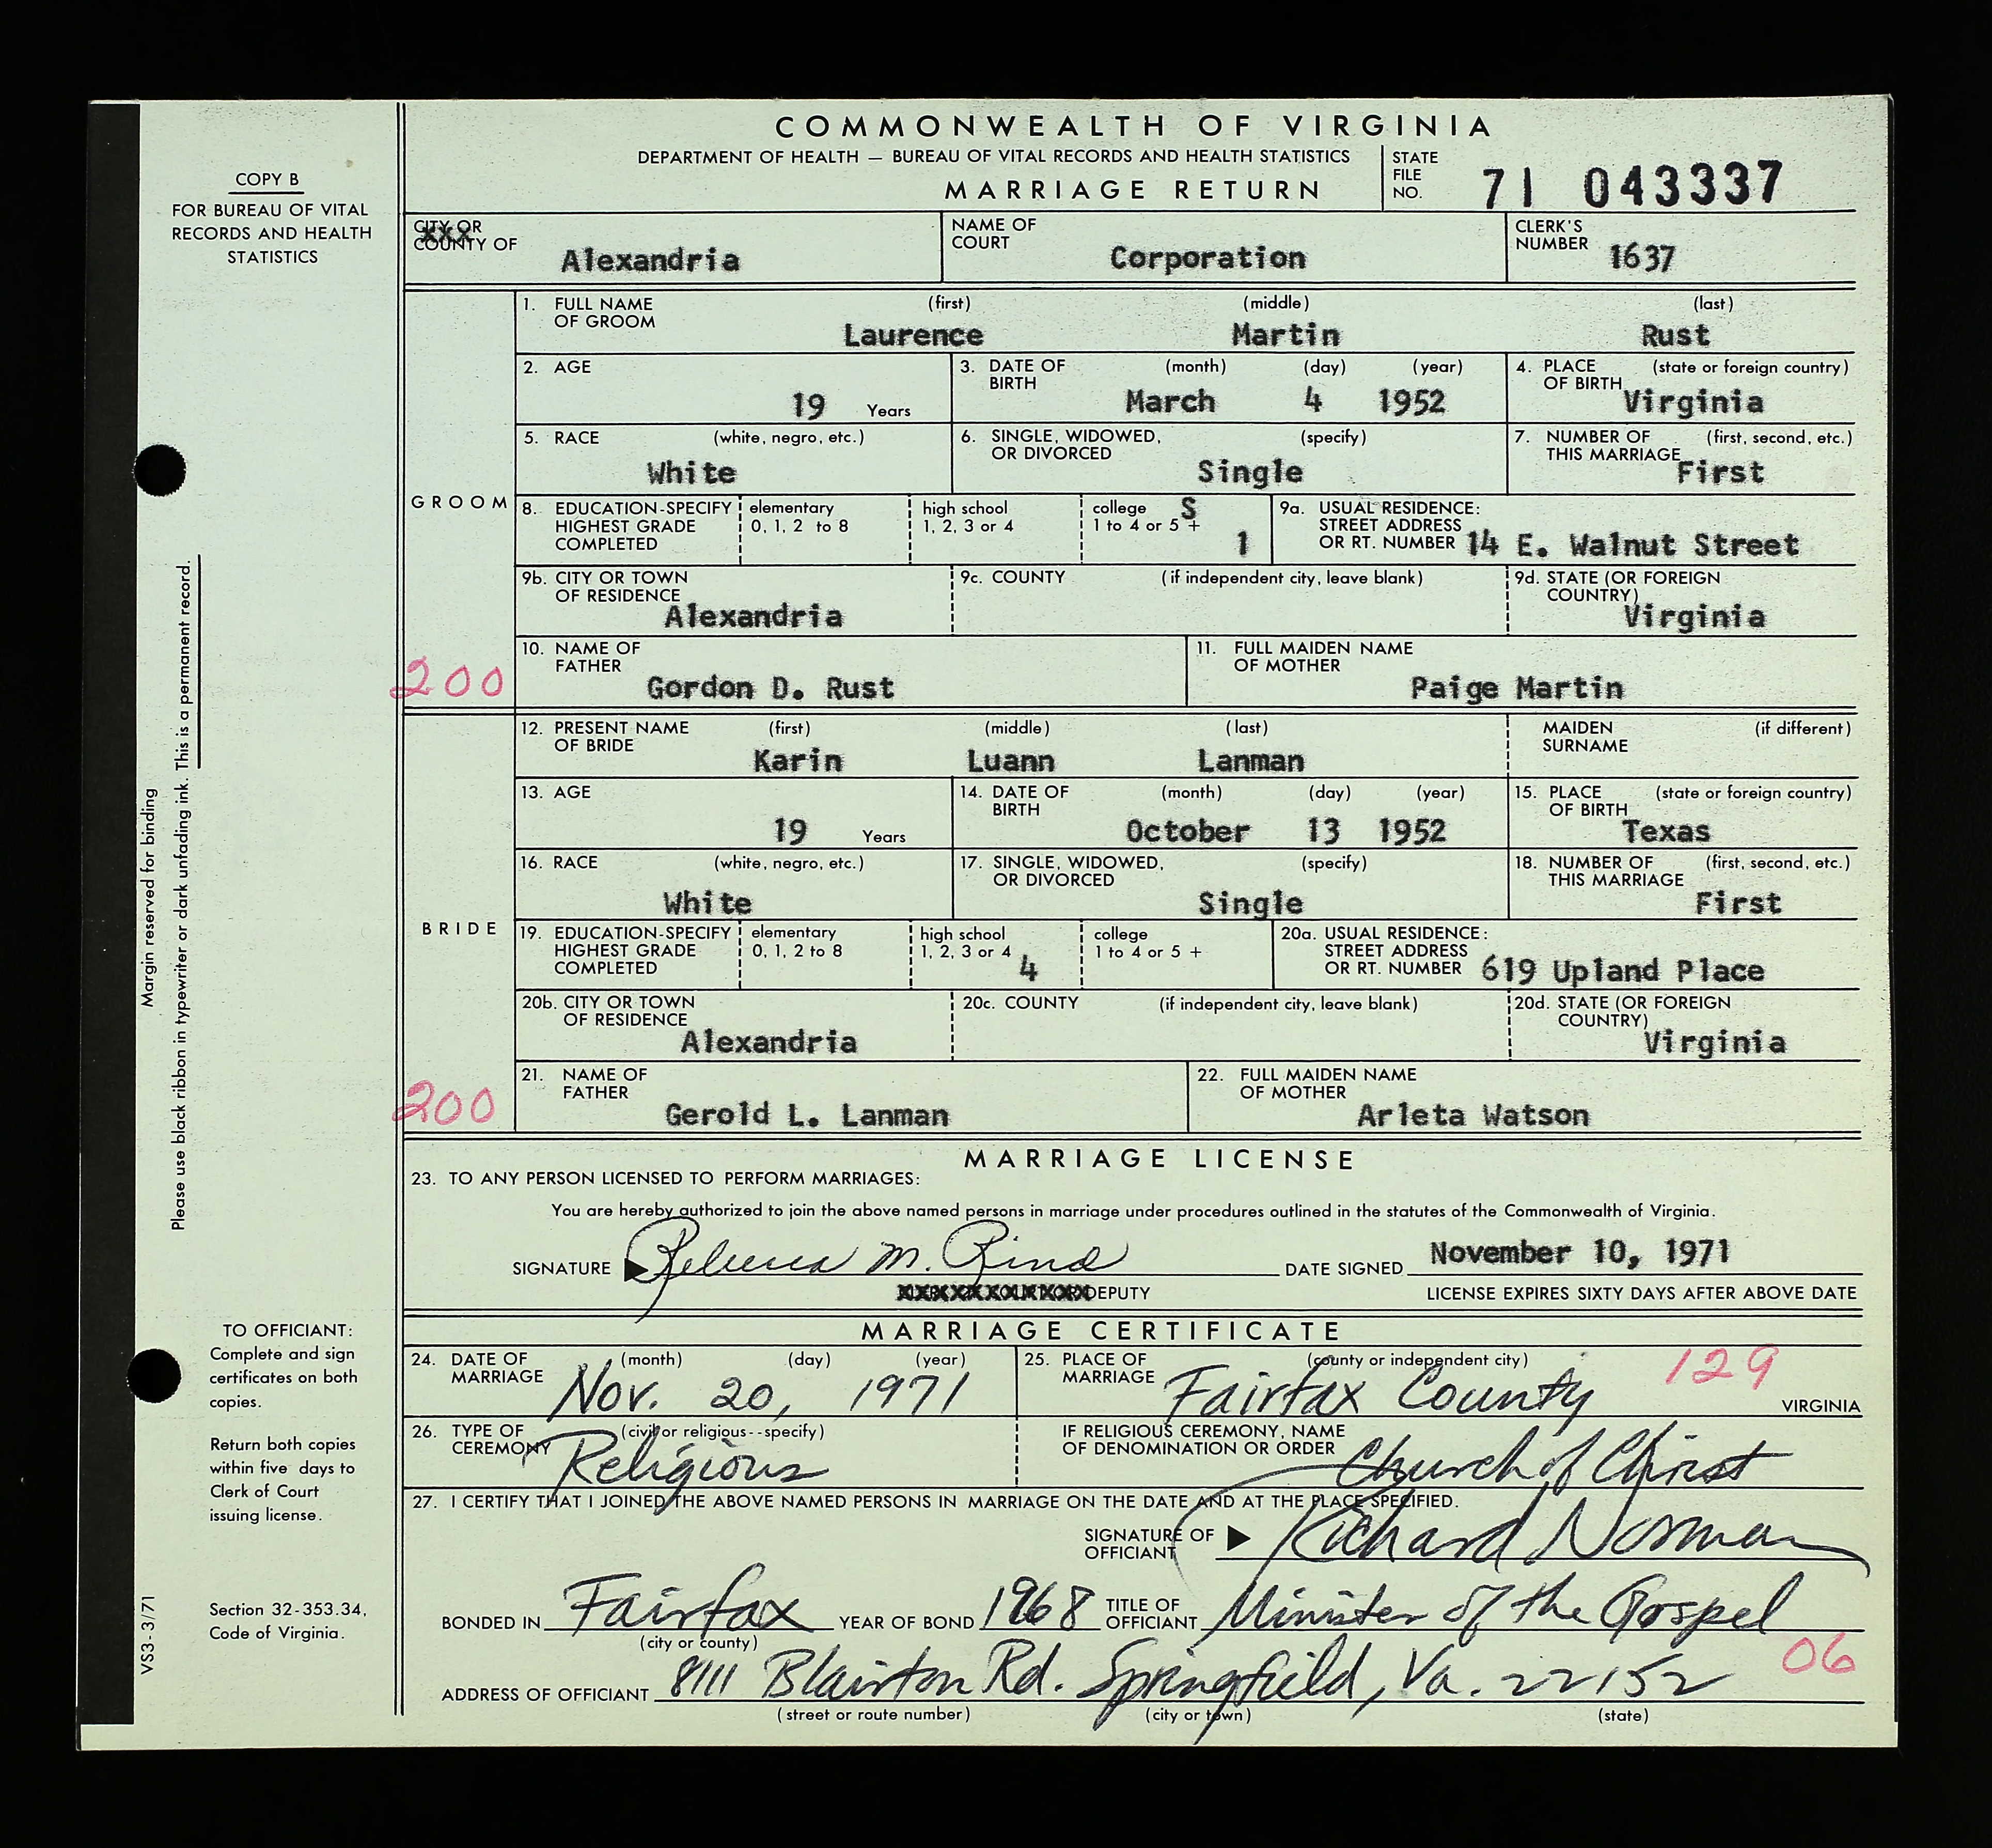 COMMONWEALTH OF VIRGINIA
DEPARTMENT OF HEALTH — BUREAU OF VITAL RECORDS AND HEALTH STATISTICS
MARRIAGE RETURN
STATE FILE NO. 71 043337
COPY B
FOR BUREAU OF VITAL
RECORDS AND HEALTH
STATISTICS
CITY OR COUNTY OF Alexandria
NAME OF COURT Corporation
CLERK'S NUMBER 1637
GROOM
1. FULL NAME OF GROOM (first) Laurence (middle) Martin (last) Rust
2. AGE 19 Years
3. DATE OF BIRTH (month) March (day) 4 (year) 1952
4. PLACE OF BIRTH (state or foreign country) Virginia
5. RACE (white, negro, etc.) White
6. SINGLE, WIDOWED, OR DIVORCED (specify) Single
7. NUMBER OF THIS MARRIAGE (first, second, etc.) First
8. EDUCATION-SPECIFY HIGHEST GRADE COMPLETED
elementary 0, 1, 2 to 8
high school 1, 2, 3 or 4
college 1 to 4 or 5 + S 1
9a. USUAL RESIDENCE: STREET ADDRESS OR RT. NUMBER 14 E. Walnut Street
9b. CITY OR TOWN OF RESIDENCE Alexandria
9c. COUNTY (if independent city, leave blank)
9d. STATE (OR FOREIGN COUNTRY) Virginia
10. NAME OF FATHER Gordon D. Rust
11. FULL MAIDEN NAME OF MOTHER Paige Martin
200
BRIDE
12. PRESENT NAME OF BRIDE (first) Karin (middle) Luann (last) Lanman
MAIDEN SURNAME (if different)
13. AGE 19 Years
14. DATE OF BIRTH (month) October (day) 13 (year) 1952
15. PLACE OF BIRTH (state or foreign country) Texas
16. RACE (white, negro, etc.) White
17. SINGLE, WIDOWED, OR DIVORCED (specify) Single
18. NUMBER OF THIS MARRIAGE (first, second, etc.) First
19. EDUCATION-SPECIFY HIGHEST GRADE COMPLETED
elementary 0, 1, 2 to 8
high school 1, 2, 3 or 4 4
college 1 to 4 or 5 +
20a. USUAL RESIDENCE: STREET ADDRESS OR RT. NUMBER 619 Upland Place
20b. CITY OR TOWN OF RESIDENCE Alexandria
20c. COUNTY (if independent city, leave blank)
20d. STATE (OR FOREIGN COUNTRY) Virginia
21. NAME OF FATHER Gerold L. Lanman
22. FULL MAIDEN NAME OF MOTHER Arleta Watson
200
MARRIAGE LICENSE
23. TO ANY PERSON LICENSED TO PERFORM MARRIAGES:
You are hereby authorized to join the above named persons in marriage under procedures outlined in the statutes of the Commonwealth of Virginia.
SIGNATURE Rebecca M. Rind
DATE SIGNED November 10, 1971
DEPUTY
LICENSE EXPIRES SIXTY DAYS AFTER ABOVE DATE
MARRIAGE CERTIFICATE
24. DATE OF MARRIAGE (month) (day) (year) Nov. 20, 1971
25. PLACE OF MARRIAGE (county or independent city) Fairfax County VIRGINIA
129
26. TYPE OF CEREMONY (civil or religious--specify) Religious
IF RELIGIOUS CEREMONY, NAME OF DENOMINATION OR ORDER Church of Christ
27. I CERTIFY THAT I JOINED THE ABOVE NAMED PERSONS IN MARRIAGE ON THE DATE AND AT THE PLACE SPECIFIED.
SIGNATURE OF OFFICIANT Richard Norman
BONDED IN Fairfax (city or county)
YEAR OF BOND 1968
TITLE OF OFFICIANT Minister of the Gospel
06
ADDRESS OF OFFICIANT 8111 Blairton Rd. Springfield, Va. 22152
(street or route number) (city or town) (state)
Margin reserved for binding
Please use black ribbon in typewriter or dark unfading ink. This is a permanent record.
TO OFFICIANT:
Complete and sign
certificates on both
copies.
Return both copies
within five days to
Clerk of Court
issuing license.
Section 32-353.34,
Code of Virginia.
VS3-3/71